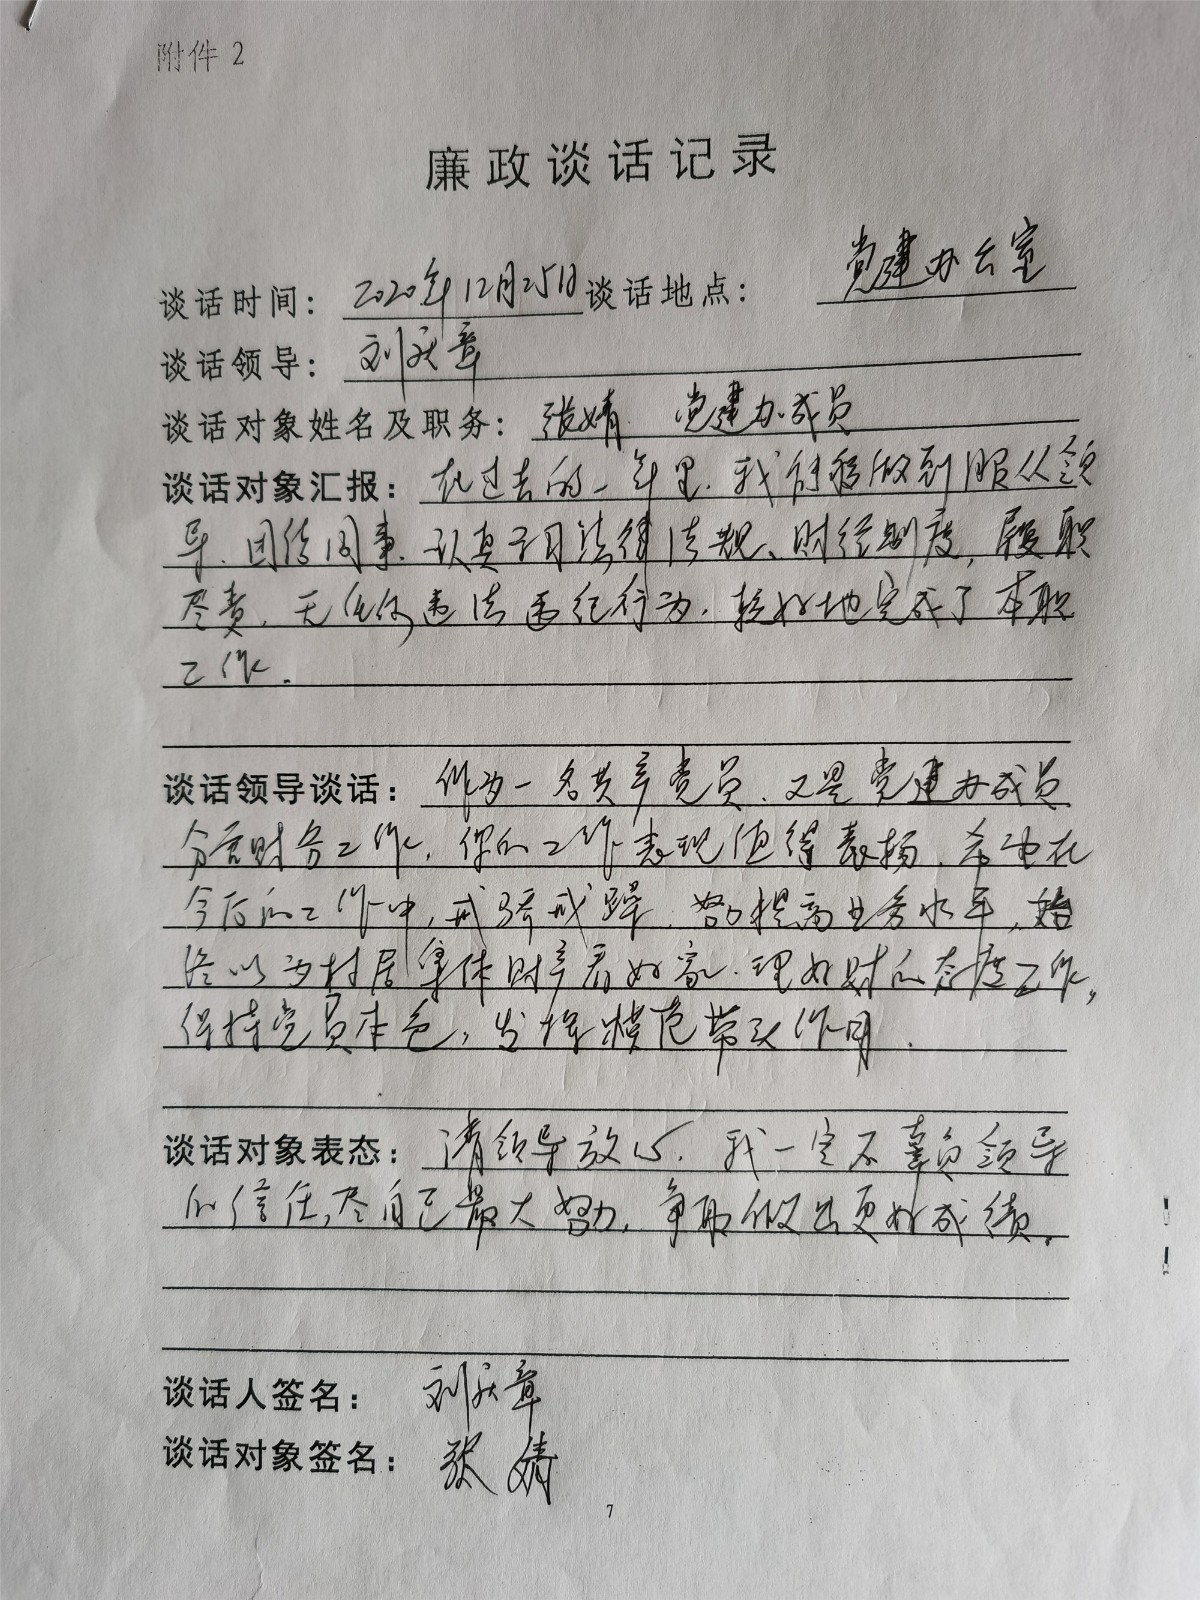 附件 2
廉政谈话记录
谈话时间： 2020年12月25日 谈话地点： 党建办公室
谈话领导： 刘庆章
谈话对象姓名及职务： 张婧 党建办成员
谈话对象汇报： 在过去的一年里，我能够做到服从领
导、团结同事、认真学习法律法规、财经制度，履职
尽责，无任何违法违纪行为，较好地完成了本职
工作。
谈话领导谈话： 作为一名共产党员，又是党建办成员
分管财务工作，你的工作表现值得表扬，希望在
今后的工作中，戒骄戒躁，努力提高业务水平，始
终以为村居集体财产看好家、理好财的态度工作，
保持党员本色，发挥模范带头作用。
谈话对象表态： 请领导放心，我一定不辜负领导
的信任，尽自己最大努力，争取做出更好成绩。
谈话人签名： 刘庆章
谈话对象签名： 张婧
7